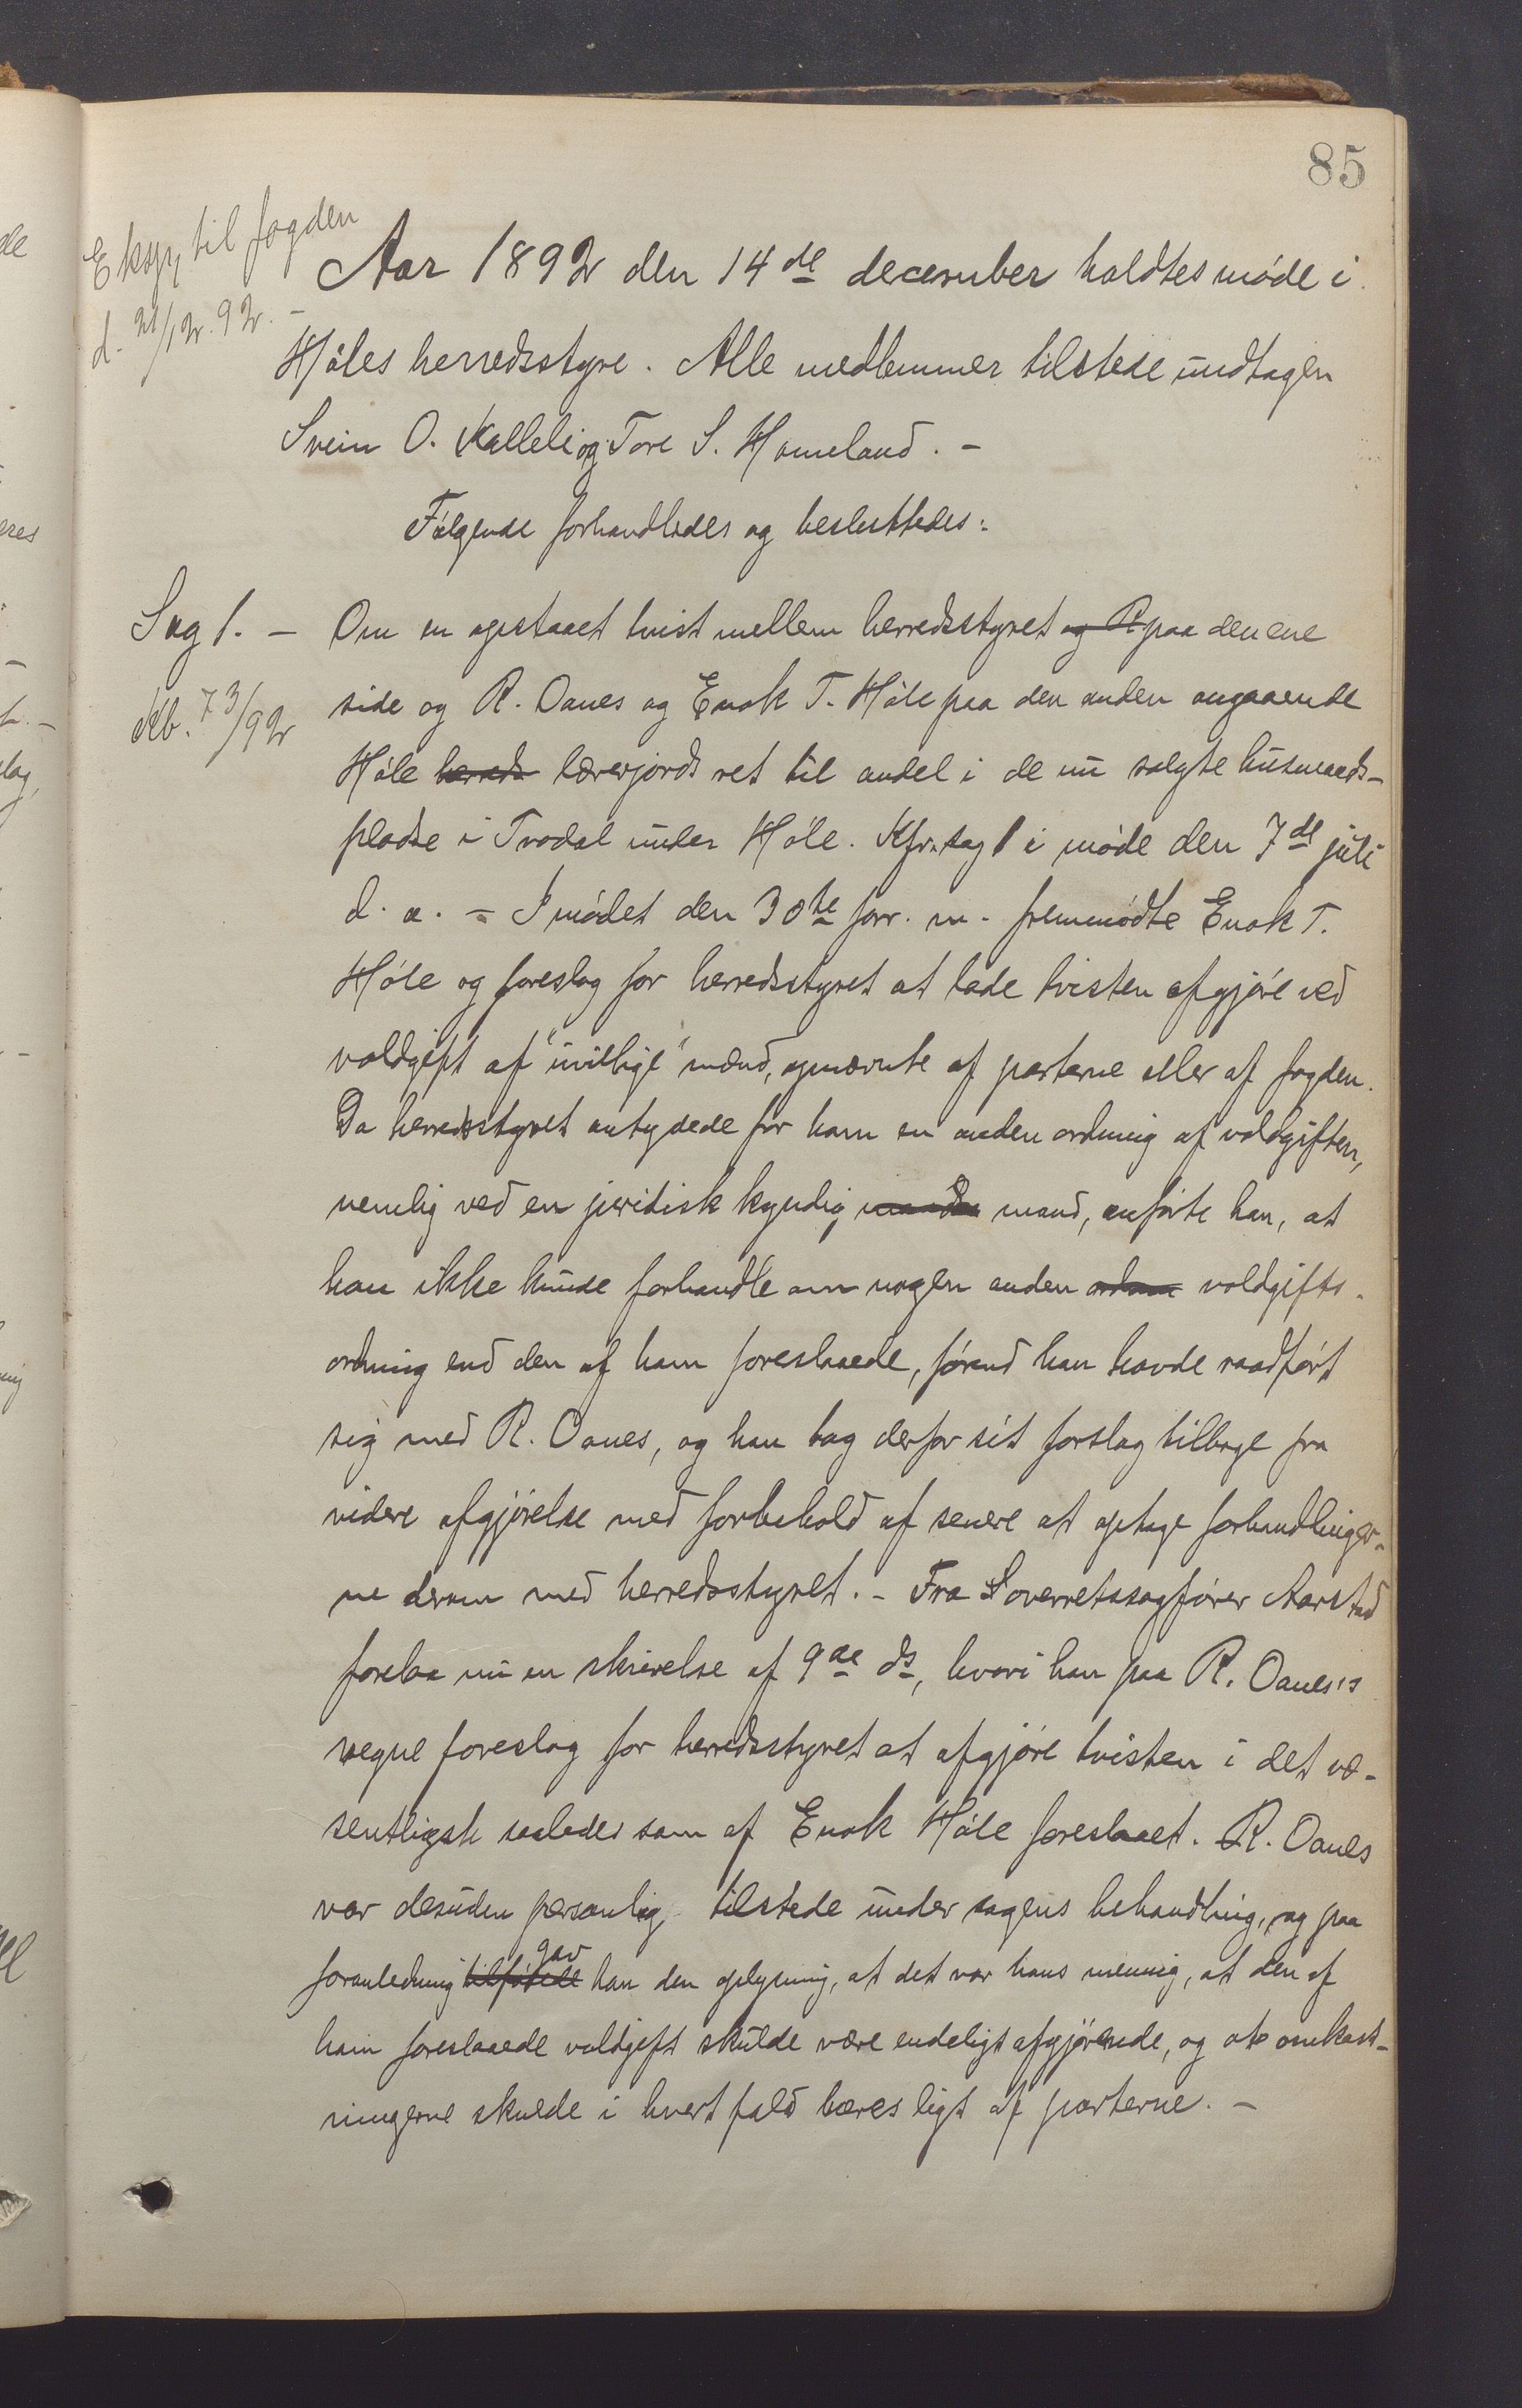 85
Eksp. til fogden
d. 21/12. 92. –
Aar 1892 den 14de december holdtes møde i
Høles herredsstyre. Alle medlemmer tilstede undtagen
Svein O. Kalleli og Tore S. Homeland. –
Følgende forhandledes og besluttedes:
Sag 1. –
Kb. 73/92
Om en opstaaet tvist mellem herredsstyret og R paa den ene
side og R. Oanes og Enok T. Høle paa den anden angaaende
Høle herreds lærerjords ret til andel i de nu solgte husmands-
pladse i Tvodal under Høle. Kfr. sag 1 i møde den 7de juli
d. a. – I mødet den 30te forr. m. fremmødte Enok T.
Høle og foreslog for herredsstyret at lade tvisten afgjøre ved
voldgift af "uvillige" mænd, opnævnte af parterne eller af fogden.
Da herredsstyret antydede for ham en anden ordning af voldgiften,
nemlig ved en juridisk kyndig mand, anførte han, at
han ikke kunde forhandle om nogen anden voldgifts-
ordning end den af ham foreslaaede, førend han havde raadført
sig med R. Oanes, og han tog derfor sit forslag tilbage fra
videre afgjørelse med forbehold af senere at optage forhandlinger-
ne derom med herredsstyret. – Fra Overretssagfører Aarstad
forelaa nu en skrivelse af 9de ds, hvori han paa R. Oanes's
vegne foreslog for herredsstyret at afgjøre tvisten i det væ-
sentligste saaledes som af Enok Høle foreslaaet. R. Oanes
var desuden personlig tilstede under sagens behandling, og paa
foranledning tilføiede gav han den oplysning, at det var hans mening, at den af
ham foreslaaede voldgift skulde være endeligt afgjørende, og at omkost-
ningerne skulde i hvert fald bæres ligt af parterne. –